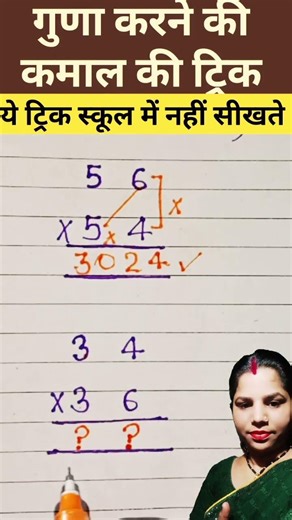 गुणा करने की
कमाल की ट्रिक
ये ट्रिक स्कूल में नहीं सीखते
5 6
x
x 5 x 4
3024 ✓
3 4
x 3 6
? ?